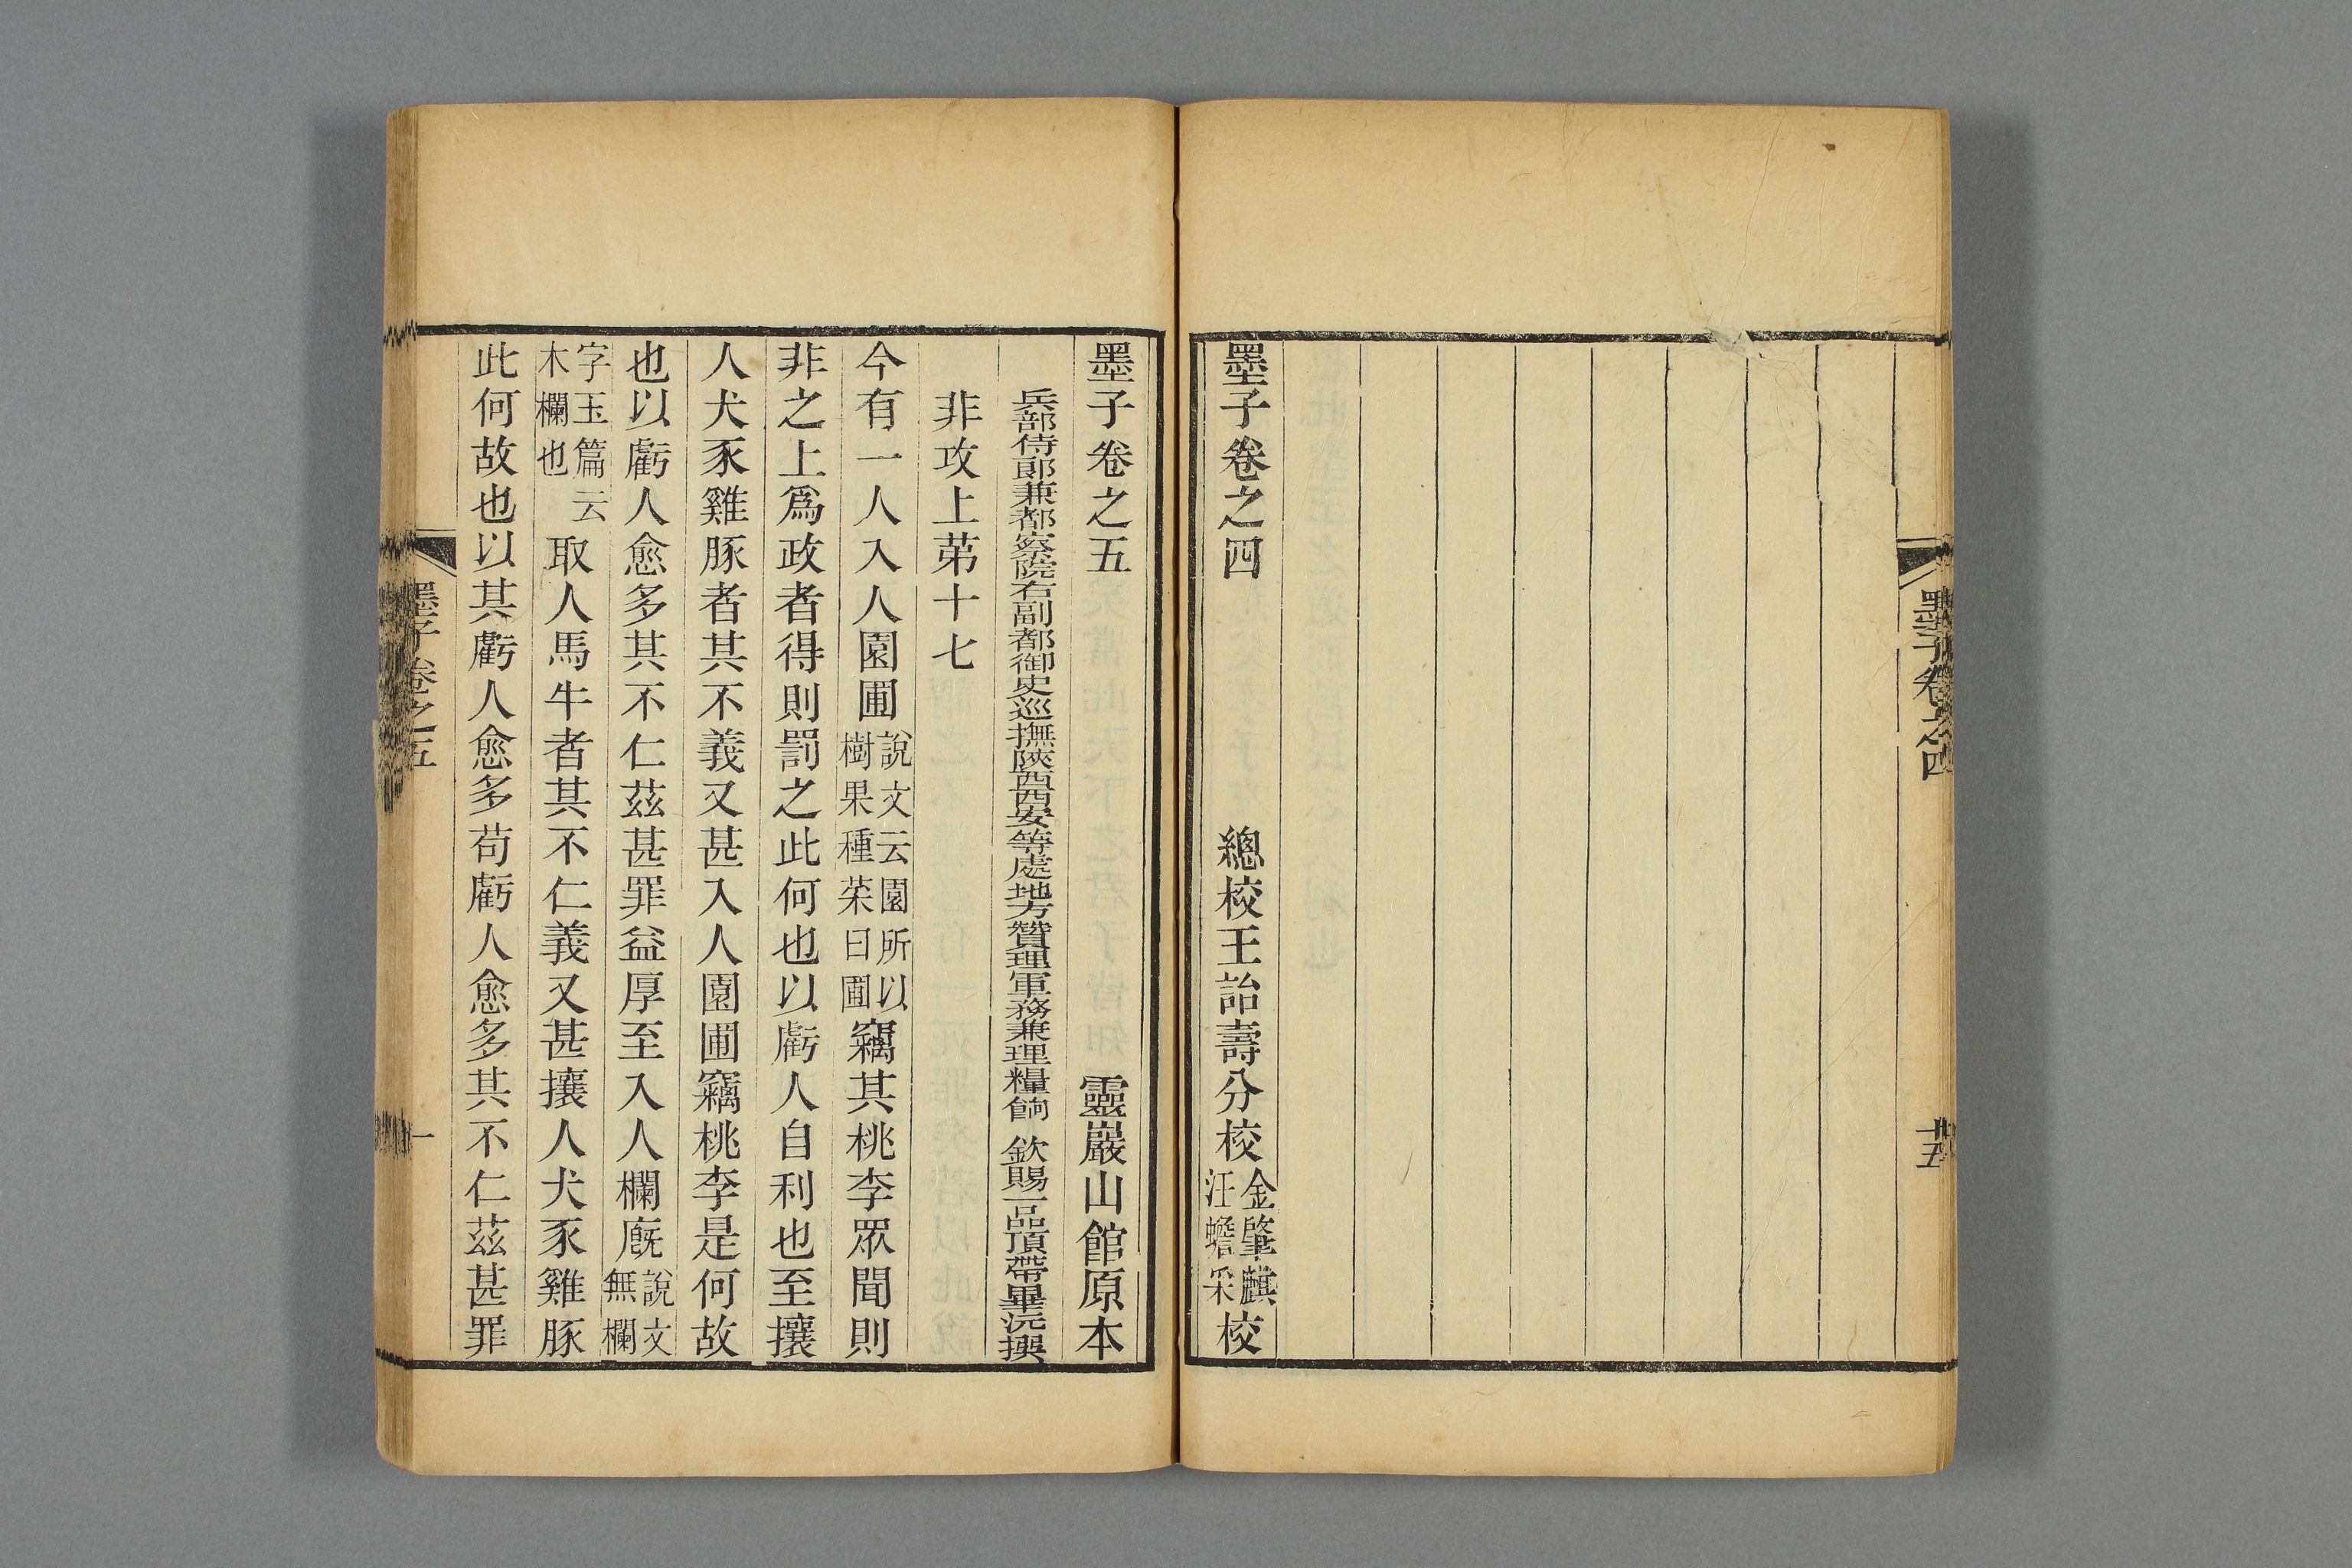 墨子卷之四
卅五
墨子卷之四　總校王詒壽分校金肇麒汪蟾采校
墨子卷之五　靈巖山館原本
兵部侍郎兼都察院右副都御史巡撫陝西西安等處地方贊理軍務兼理糧餉　欽賜一品頂帶畢沅撰
非攻上第十七
今有一人入人園圃說文云園所以樹果種菜曰圃竊其桃李眾聞則
非之上爲政者得則罰之此何也以虧人自利也至攘
人犬豕雞豚者其不義又甚入人園圃竊桃李是何故
也以虧人愈多其不仁茲甚罪益厚至入人欄廐說文無欄
字玉篇云木欄也取人馬牛者其不仁義又甚攘人犬豕雞豚
此何故也以其虧人愈多苟虧人愈多其不仁茲甚罪
墨子卷之五
一